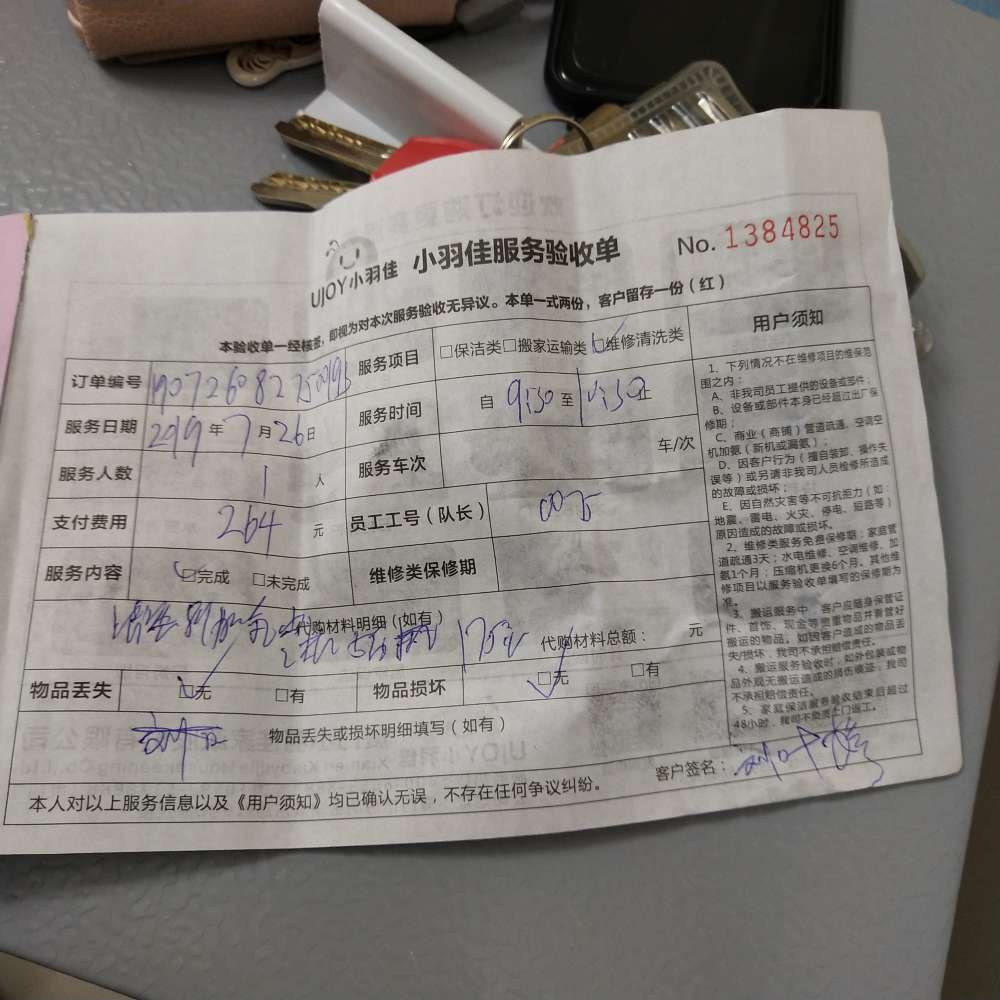 UJOY小羽佳 小羽佳服务验收单 No.1384825
本验收单一经核签,即视为对本次服务验收无异议。本单一式两份,客户留存一份(红)
订单编号 服务项目 □保洁类□搬家运输类□维修清洗类
服务日期 2019年7月26日 服务时间 自9:30至
服务人数 1人 服务车次 车/次
支付费用 264元 员工工号(队长)
服务内容 □完成 □未完成 维修类保修期
代购材料明细(如有)
代购材料总额: 元
物品丢失 □无 □有 物品损坏 □无 □有
物品丢失或损坏明细填写(如有)
客户签名:
本人对以上服务信息以及《用户须知》均已确认无误,不存在任何争议纠纷。
用户须知
1、下列情况不在维修项目的维保范
围之内:
A、非我司员工提供的设备或部件;
B、设备或部件本身已经超过出厂保
修期;
C、商业(商铺)管道疏通,空调空
机加氨(新机或漏氨);
D、因客户行为(擅自装卸、操作失
误等)或另请非我司人员检修所造成
的故障或损坏;
E、因自然灾害等不可抗拒力(如:
地震、雷电、火灾、停电、短路等)
原因造成的故障或损坏。
2、维修类服务免费保修期:家庭管
道疏通3天;水电维修、空调维修、加
氨1个月;压缩机更换6个月。其他维
修项目以服务验收单填写的保修期为
准。
3、搬运服务中,客户应随身保管证
件、首饰、现金等贵重物品并看管好
搬运的物品。如因客户造成的物品丢
失/损坏,我司不承担赔偿责任。
4、搬运服务验收时,如外包装或物
品外观无搬运造成的损伤痕迹,我司
不承担赔偿责任。
5、家庭保洁服务验收结束后超过
48小时,我司不负责上门返工。